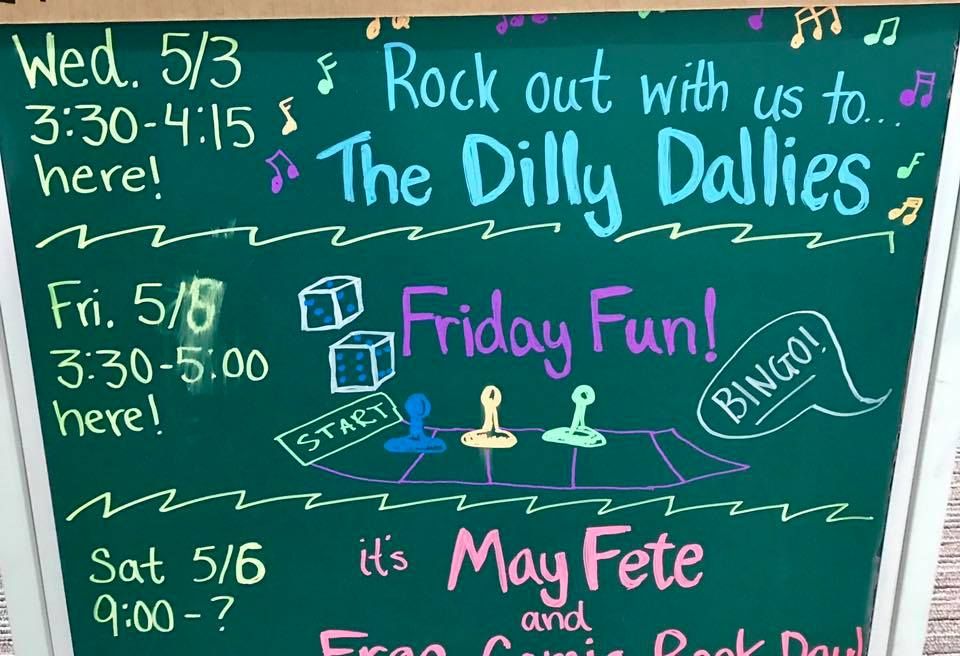 Wed. 5/3
3:30-4:15
here!
Rock out with us to...
The Dilly Dallies
Fri. 5/
3:30-5:00
here!
Friday Fun!
START
BINGO!
Sat 5/6
9:00-?
it's May Fete
and
Free Comic Book Day!